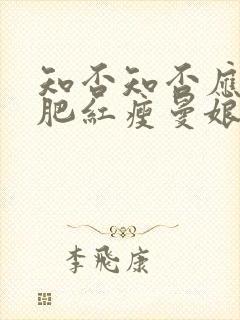 知否知否應
肥紅瘦曼娘
李飛康